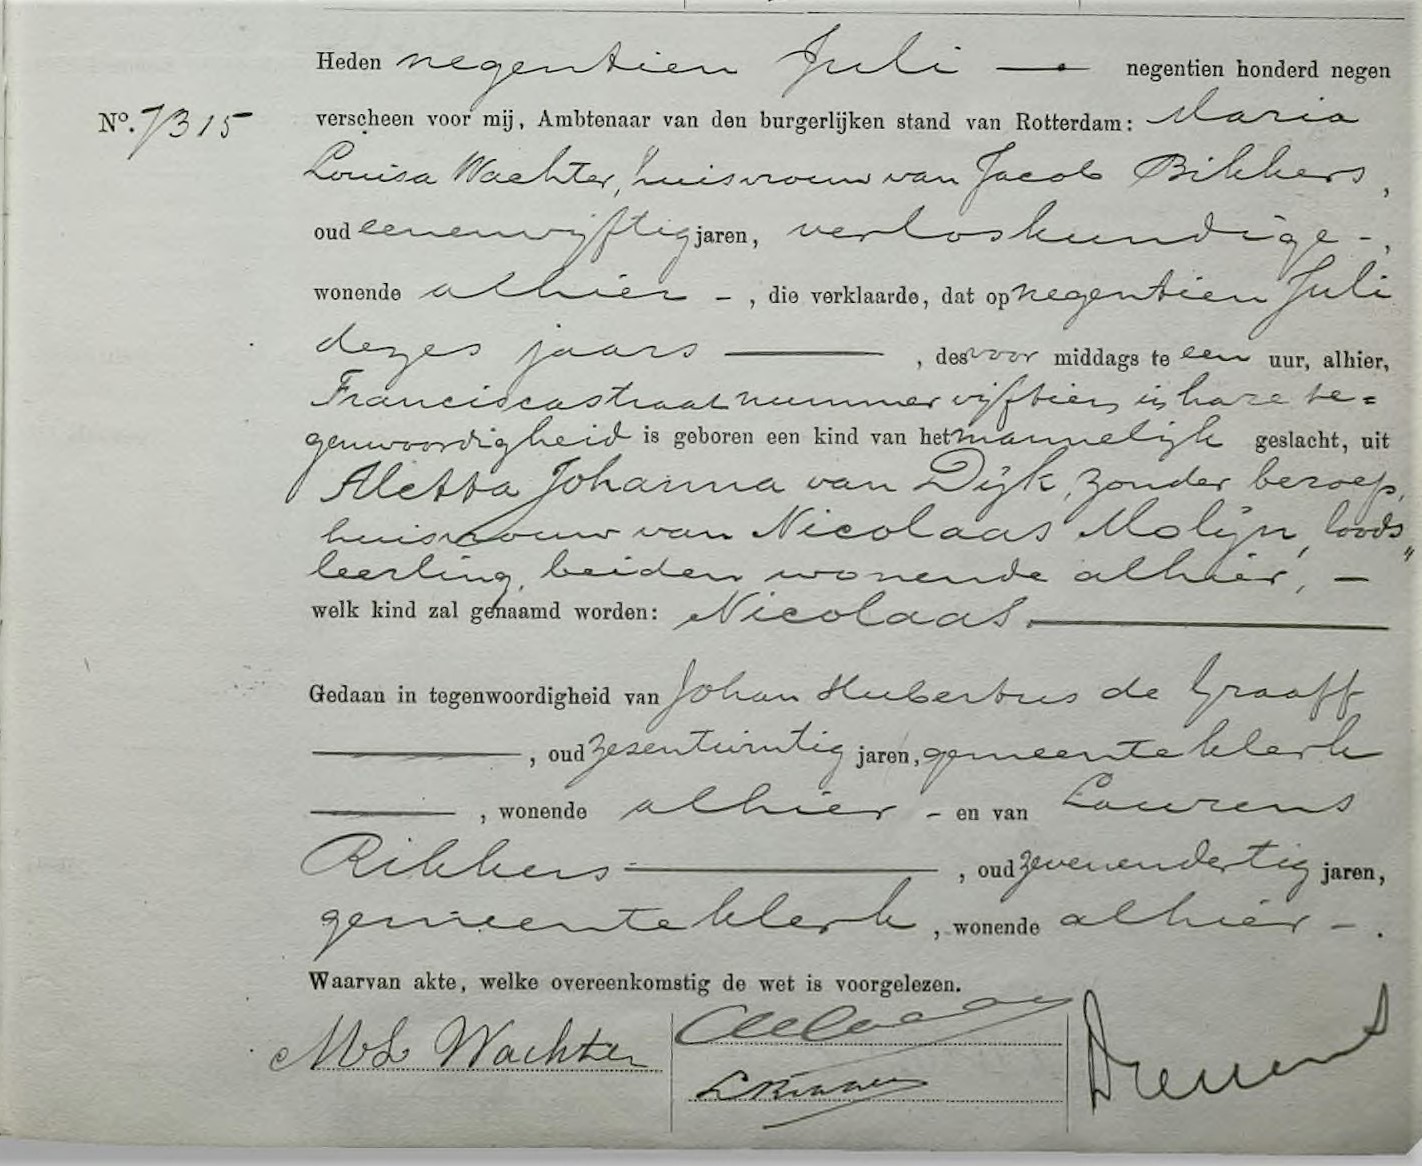 Heden negentien Juli — negentien honderd negen
Nº. 7315 verscheen voor mij, Ambtenaar van den burgerlijken stand van Rotterdam: Maria
Louisa Wachter, huisvrouw van Jacob Bikkers,
oud eenenvijftig jaren, verloskundige -,
wonende alhier - , die verklaarde, dat op negentien Juli
dezes jaars — , des voor middags te een uur, alhier,
Franciscastraat nummer vijftien, in hare te=
genwoordigheid is geboren een kind van het mannelijk geslacht, uit
Aletta Johanna van Dijk, zonder beroep,
huisvrouw van Nicolaas Molijn, loods„
leerling, beiden wonende alhier, —
welk kind zal genaamd worden: Nicolaas. —
Gedaan in tegenwoordigheid van Johan Hubertus de Graaff
— , oud zesentwintig jaren, gemeenteklerk
— , wonende alhier - en van Laurens
Rikkers — , oud zevenendertig jaren,
gemeenteklerk , wonende alhier - .
Waarvan akte, welke overeenkomstig de wet is voorgelezen.
M L Wachter